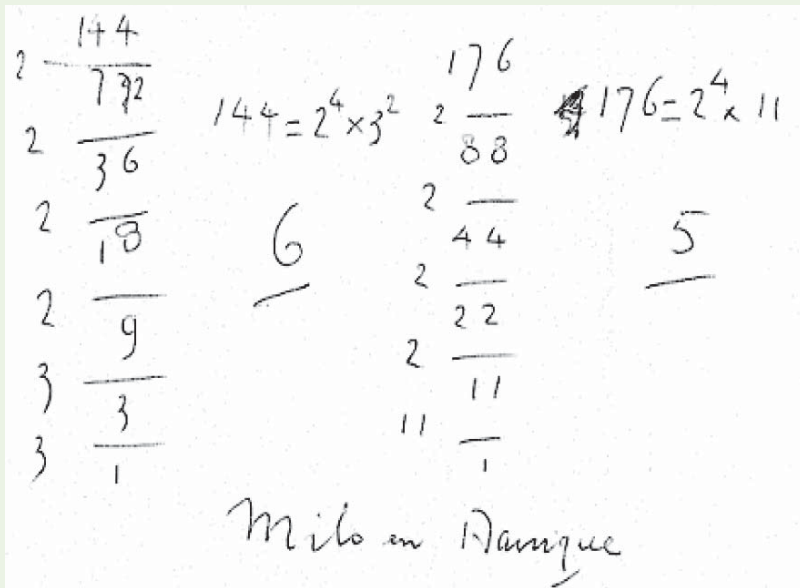 144
2 72
2 36
2 18
2 9
3 3
3 1
144 = 2⁴ × 3²
6
176
2 88
2 44
2 22
2 11
11 1
176 = 2⁴ × 11
5
Milo en